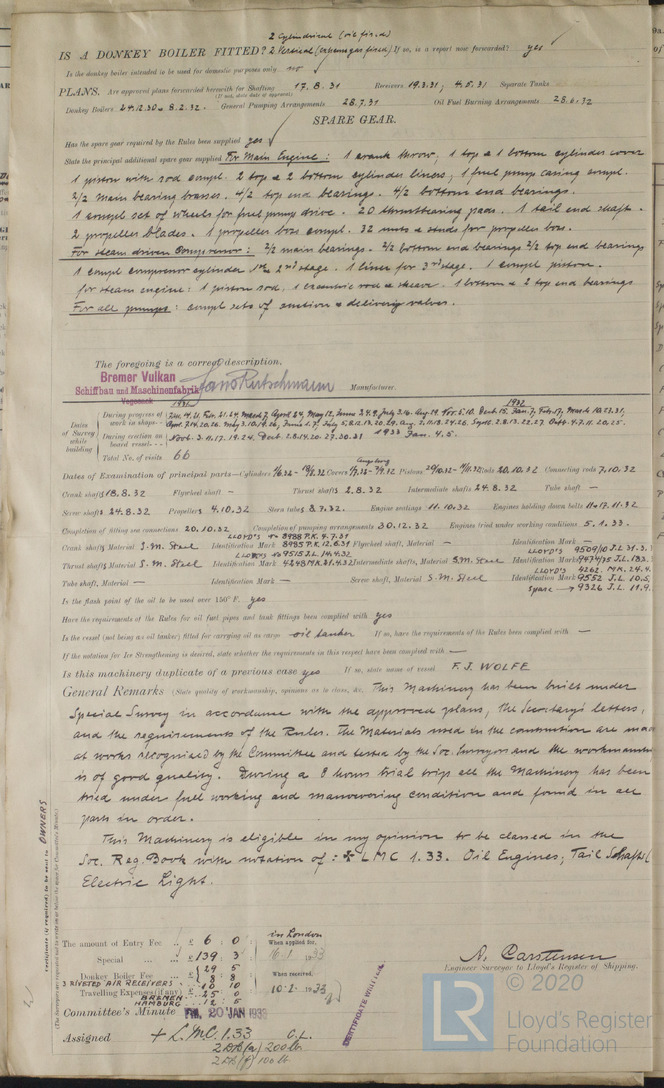 2 Cylindrical (oil fired)
IS A DONKEY BOILER FITTED? 2 Vertical (exhaust gas fired) If so, is a report now forwarded? yes
Is the donkey boiler intended to be used for domestic purposes only no
PLANS. Are approved plans forwarded herewith for Shafting 17.8.31 Receivers 19.3.31, 4.5.31 Separate Tanks
(If not, state date of approval)
Donkey Boilers 24.12.30 & 8.2.32. General Pumping Arrangements 28.7.31 Oil Fuel Burning Arrangements 28.6.32
SPARE GEAR.
Has the spare gear required by the Rules been supplied yes
State the principal additional spare gear supplied For Main Engine: 1 crank throw, 1 top & 1 bottom cylinder cover
1 piston with rod compl. 2 top & 2 bottom cylinder liners, 1 fuel pump casing compl.
2/2 main bearing brasses. 4/2 top end bearings. 4/2 bottom end bearings.
1 compl set of wheels for fuel pump drive. 20 thrustbearing pads. 1 tail end shaft.
2 propeller blades. 1 propeller boss compl. 32 nuts & studs for propeller boss.
For steam driven Compressor: 2/2 main bearings. 2/2 bottom end bearings 2/2 top end bearings
1 compl compressor cylinder 1st & 2nd stage. 1 liner for 3rd stage. 1 compl piston.
for steam engine: 1 piston rod, 1 excentric rod & sheave. 1 bottom & 2 top end bearings
For all pumps: compl sets of suction & delivery valves.
The foregoing is a correct description,
Bremer Vulkan
Schiffbau und Maschinenfabrik
Vegesack
Manufacturer.
Dates of Survey while building
1931 1932
During progress of work in shops-- Dec. 14, 21, Feb. 21, 24, March 7, April 24, May 12, June 3.4.9, July 3.16. Aug. 29, Nov. 5.10. Decb. 15. Jan. 7, Feb. 17, March 10.23.31,
During erection on board vessel-- Novb. 3.11.17.19.24. Decb. 2.8.14.20.27.30.31 1933 Jan. 4.5.
Total No. of visits 66
Dates of Examination of principal parts—Cylinders Covers Pistons Rods 20.10.32 Connecting rods 7.10.32
Crank shaft 18.8.32 Flywheel shaft — Thrust shaft 2.8.32 Intermediate shafts 24.8.32 Tube shaft —
Screw shaft 24.8.32 Propeller 4.10.32 Stern tube 8.7.32. Engine seatings 11.10.32 Engines holding down bolts 11 & 17.11.32
Completion of fitting sea connections 20.10.32 Completion of pumping arrangements 30.12.32 Engines tried under working conditions 5.1.33.
Crank shaft, Material S.M. Steel Identification Mark LLOYD'S No 8988 P.K. 4.7.31 8985 P.K. 12.6.31 Flywheel shaft, Material — Identification Mark —
Thrust shaft, Material S.M. Steel Identification Mark LLOYD'S No 9515 J.L. 14.4.32 4248 M.K. 21.4.32 Intermediate shafts, Material S.M. Steel Identification Marks LLOYD'S 9509/10 J.L. 31.3. 9474/75 J.L. 18.3.
Tube shaft, Material — Identification Mark — Screw shaft, Material S.M. Steel Identification Mark LLOYD'S 4262 M.K. 24.4. 9552 J.L. 10.5.
Spare → 9326 J.L. 11.9.
Is the flash point of the oil to be used over 150° F. yes
Have the requirements of the Rules for oil fuel pipes and tank fittings been complied with yes
Is the vessel (not being an oil tanker) fitted for carrying oil as cargo oil tanker If so, have the requirements of the Rules been complied with —
If the notation for Ice Strengthening is desired, state whether the requirements in this respect have been complied with —
Is this machinery duplicate of a previous case yes If so, state name of vessel F.J. WOLFE
General Remarks (State quality of workmanship, opinions as to class, &c. This Machinery has been built under
Special Survey in accordance with the approved plans, the Secretary's letters,
and the requirements of the Rules. The Materials used in the construction are made
at works recognized by the Committee and tested by the Soc. Surveyors and the workmanship
is of good quality. During a 8 hours trial trip all the Machinery has been
tried under full working and manoeuvering condition and found in all
parts in order.
This Machinery is eligible in my opinion to be classed in the
Soc. Reg. Book with notation of: ✠ LMC 1.33. Oil Engines, Tail Shaft
Electric Light.
Certificate (if required) to be sent to OWNERS
(The Surveyors are requested not to write on or below the space for Committee's Minute.)
in London
The amount of Entry Fee .. £ 6 : 0 When applied for,
Special ... ... £ 139 : 3 16.1.1933
Donkey Boiler Fee ... £ 29 : 5 When received,
3 RIVETED AIR RECEIVERS 8 : 8
Travelling Expenses (if any) £ 10 : 10 10.2.1933
BREMEN 25 : 0
HAMBURG 12 : 5
A. Carstensen
Engineer Surveyor to Lloyd's Register of Shipping.
Committee's Minute FRI. 20 JAN 1933
Assigned + L.M.C. 1.33 O.L.
2 DB (ex) 200 lb
2 DB (f) 100 lb
CERTIFICATE WRITTEN
LR © 2020
Lloyd's Register
Foundation